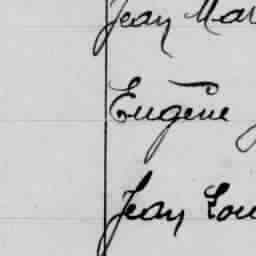 Jean Mar
Eugène
Jean Lou